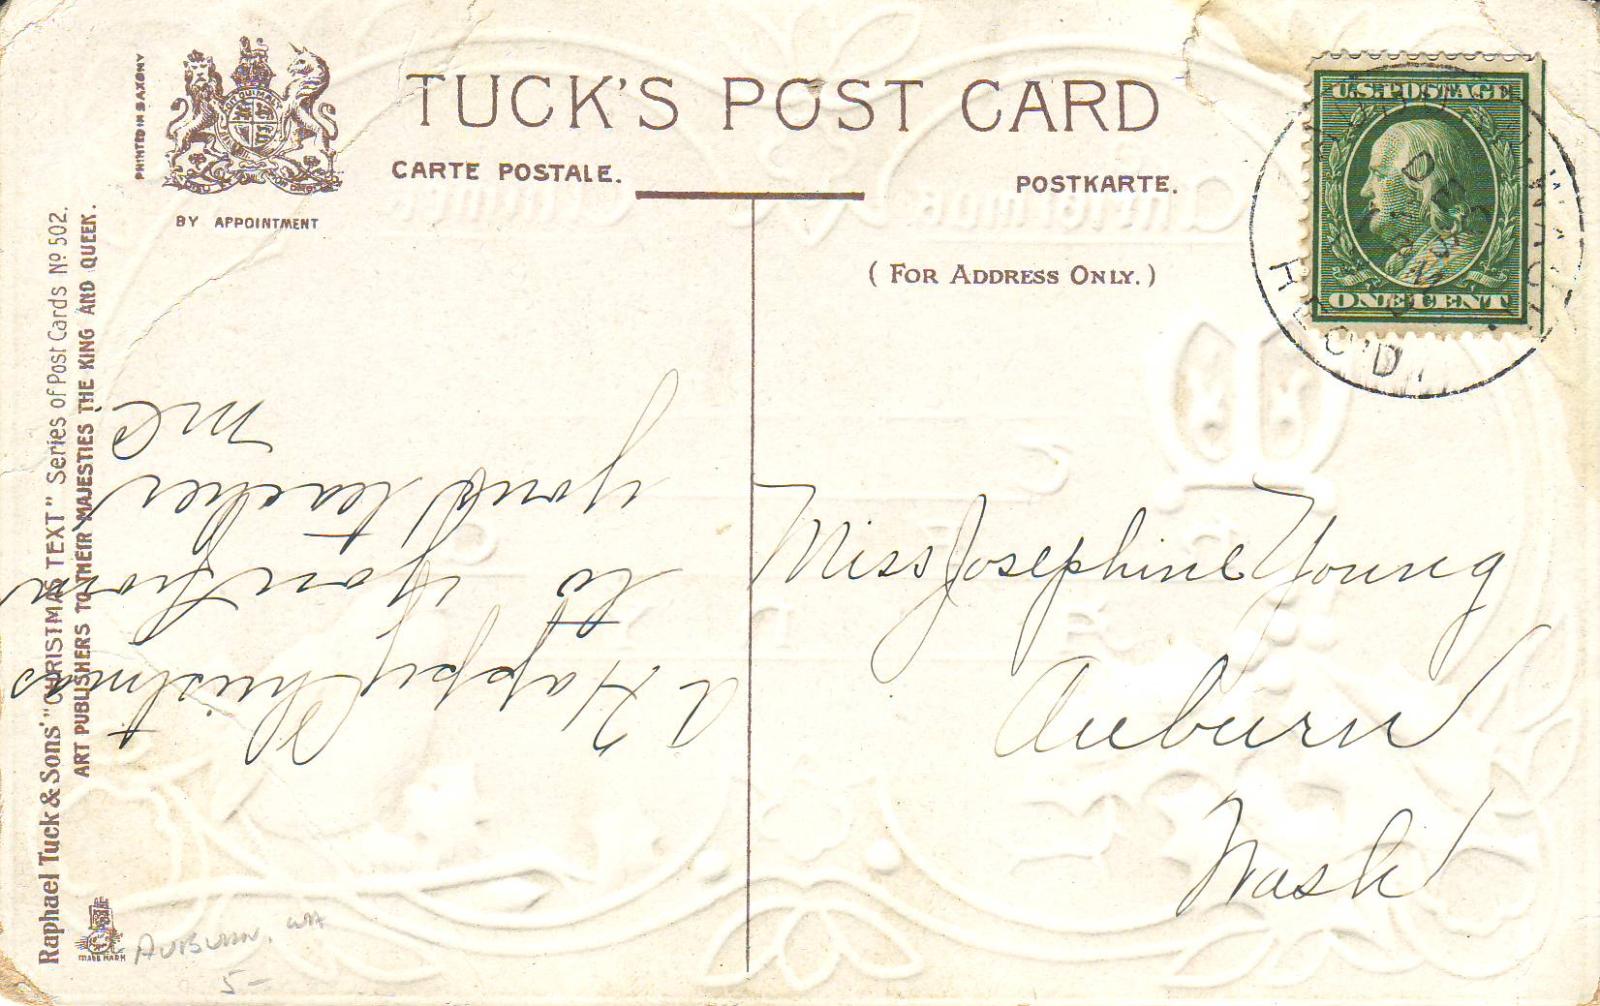 PRINTED IN SAXONY
BY APPOINTMENT
TUCK'S POST CARD
CARTE POSTALE.
POSTKARTE.
(FOR ADDRESS ONLY.)
U.S. POSTAGE
ONE CENT
REC'D.
Raphael Tuck & Sons' "CHRISTMAS TEXT" Series of Post Cards No 502.
ART PUBLISHERS TO THEIR MAJESTIES THE KING AND QUEEN.
TRADE MARK
A Happy Christmas
to you from
your teacher
MC
Miss Josephine Young
Auburn
Wash
AUBURN, WA
5-